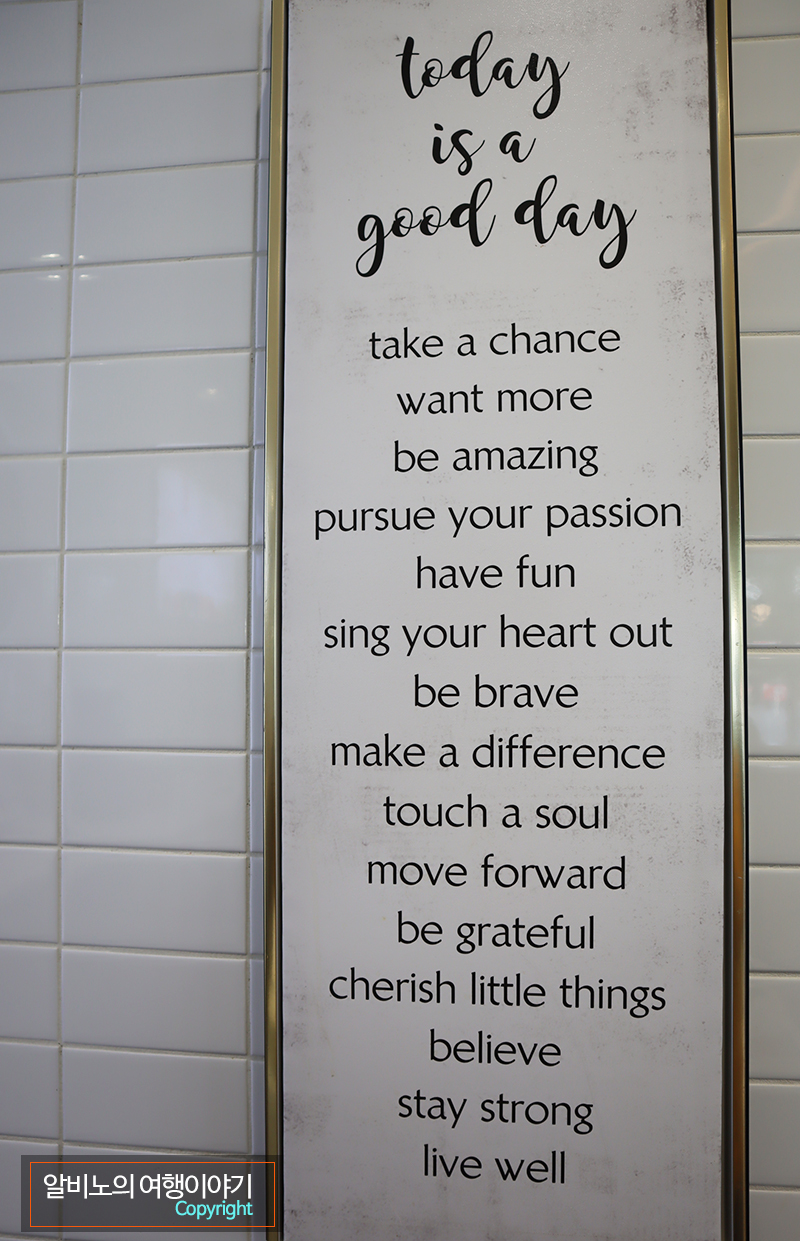 today
is a
good day
take a chance
want more
be amazing
pursue your passion
have fun
sing your heart out
be brave
make a difference
touch a soul
move forward
be grateful
cherish little things
believe
stay strong
live well
알비노의 여행이야기
Copyright